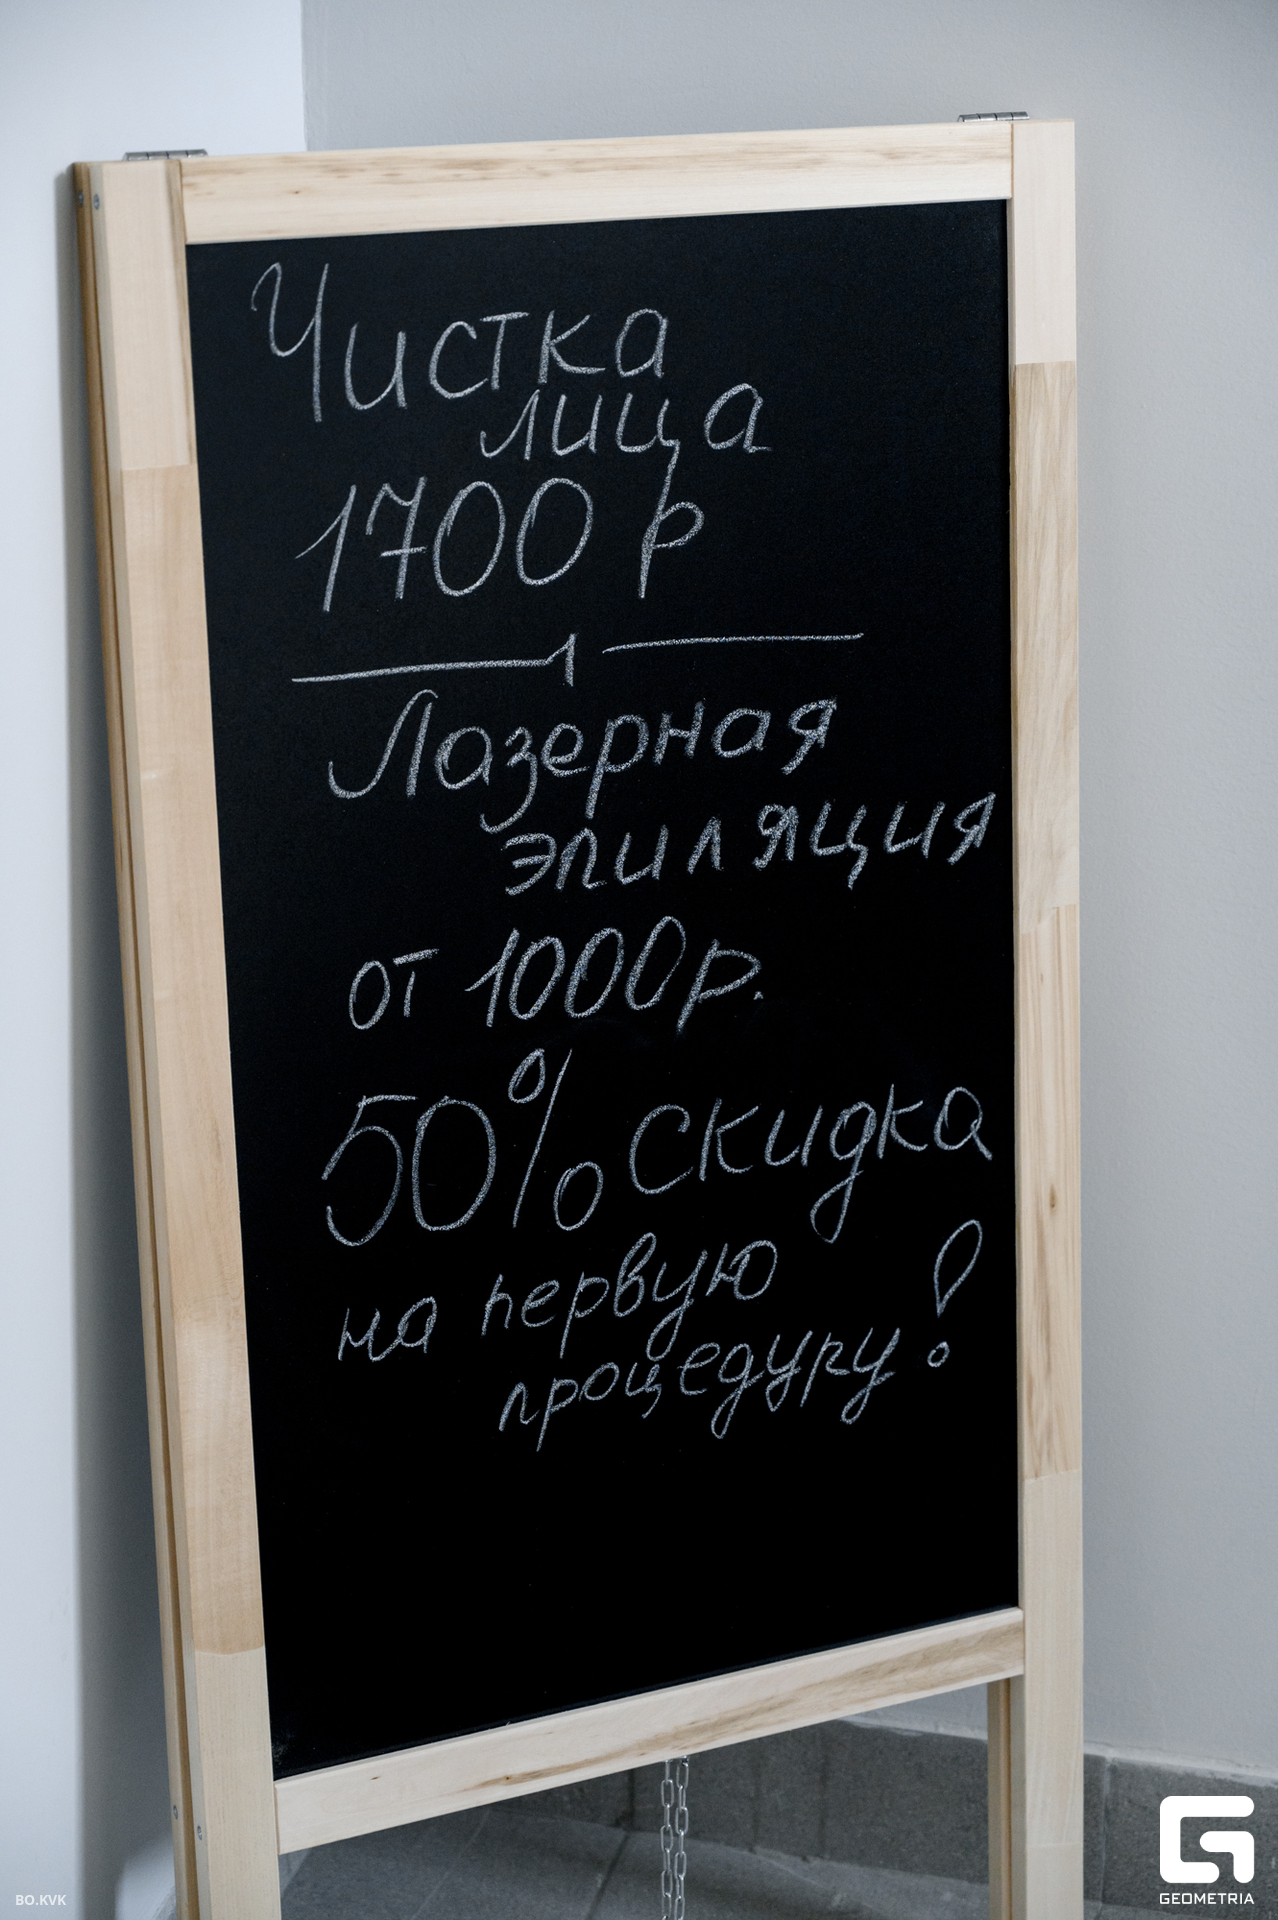 Чистка
лица
1700 р
Лазерная
эпиляция
от 1000р.
50% скидка
на первую
процедуру!
BO.KVK
GEOMETRIA